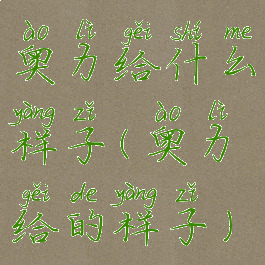 ào lì gěi shí me
奥力给什么
yàng zǐ ào lì
样子(奥力
gěi de yàng zǐ
给的样子)